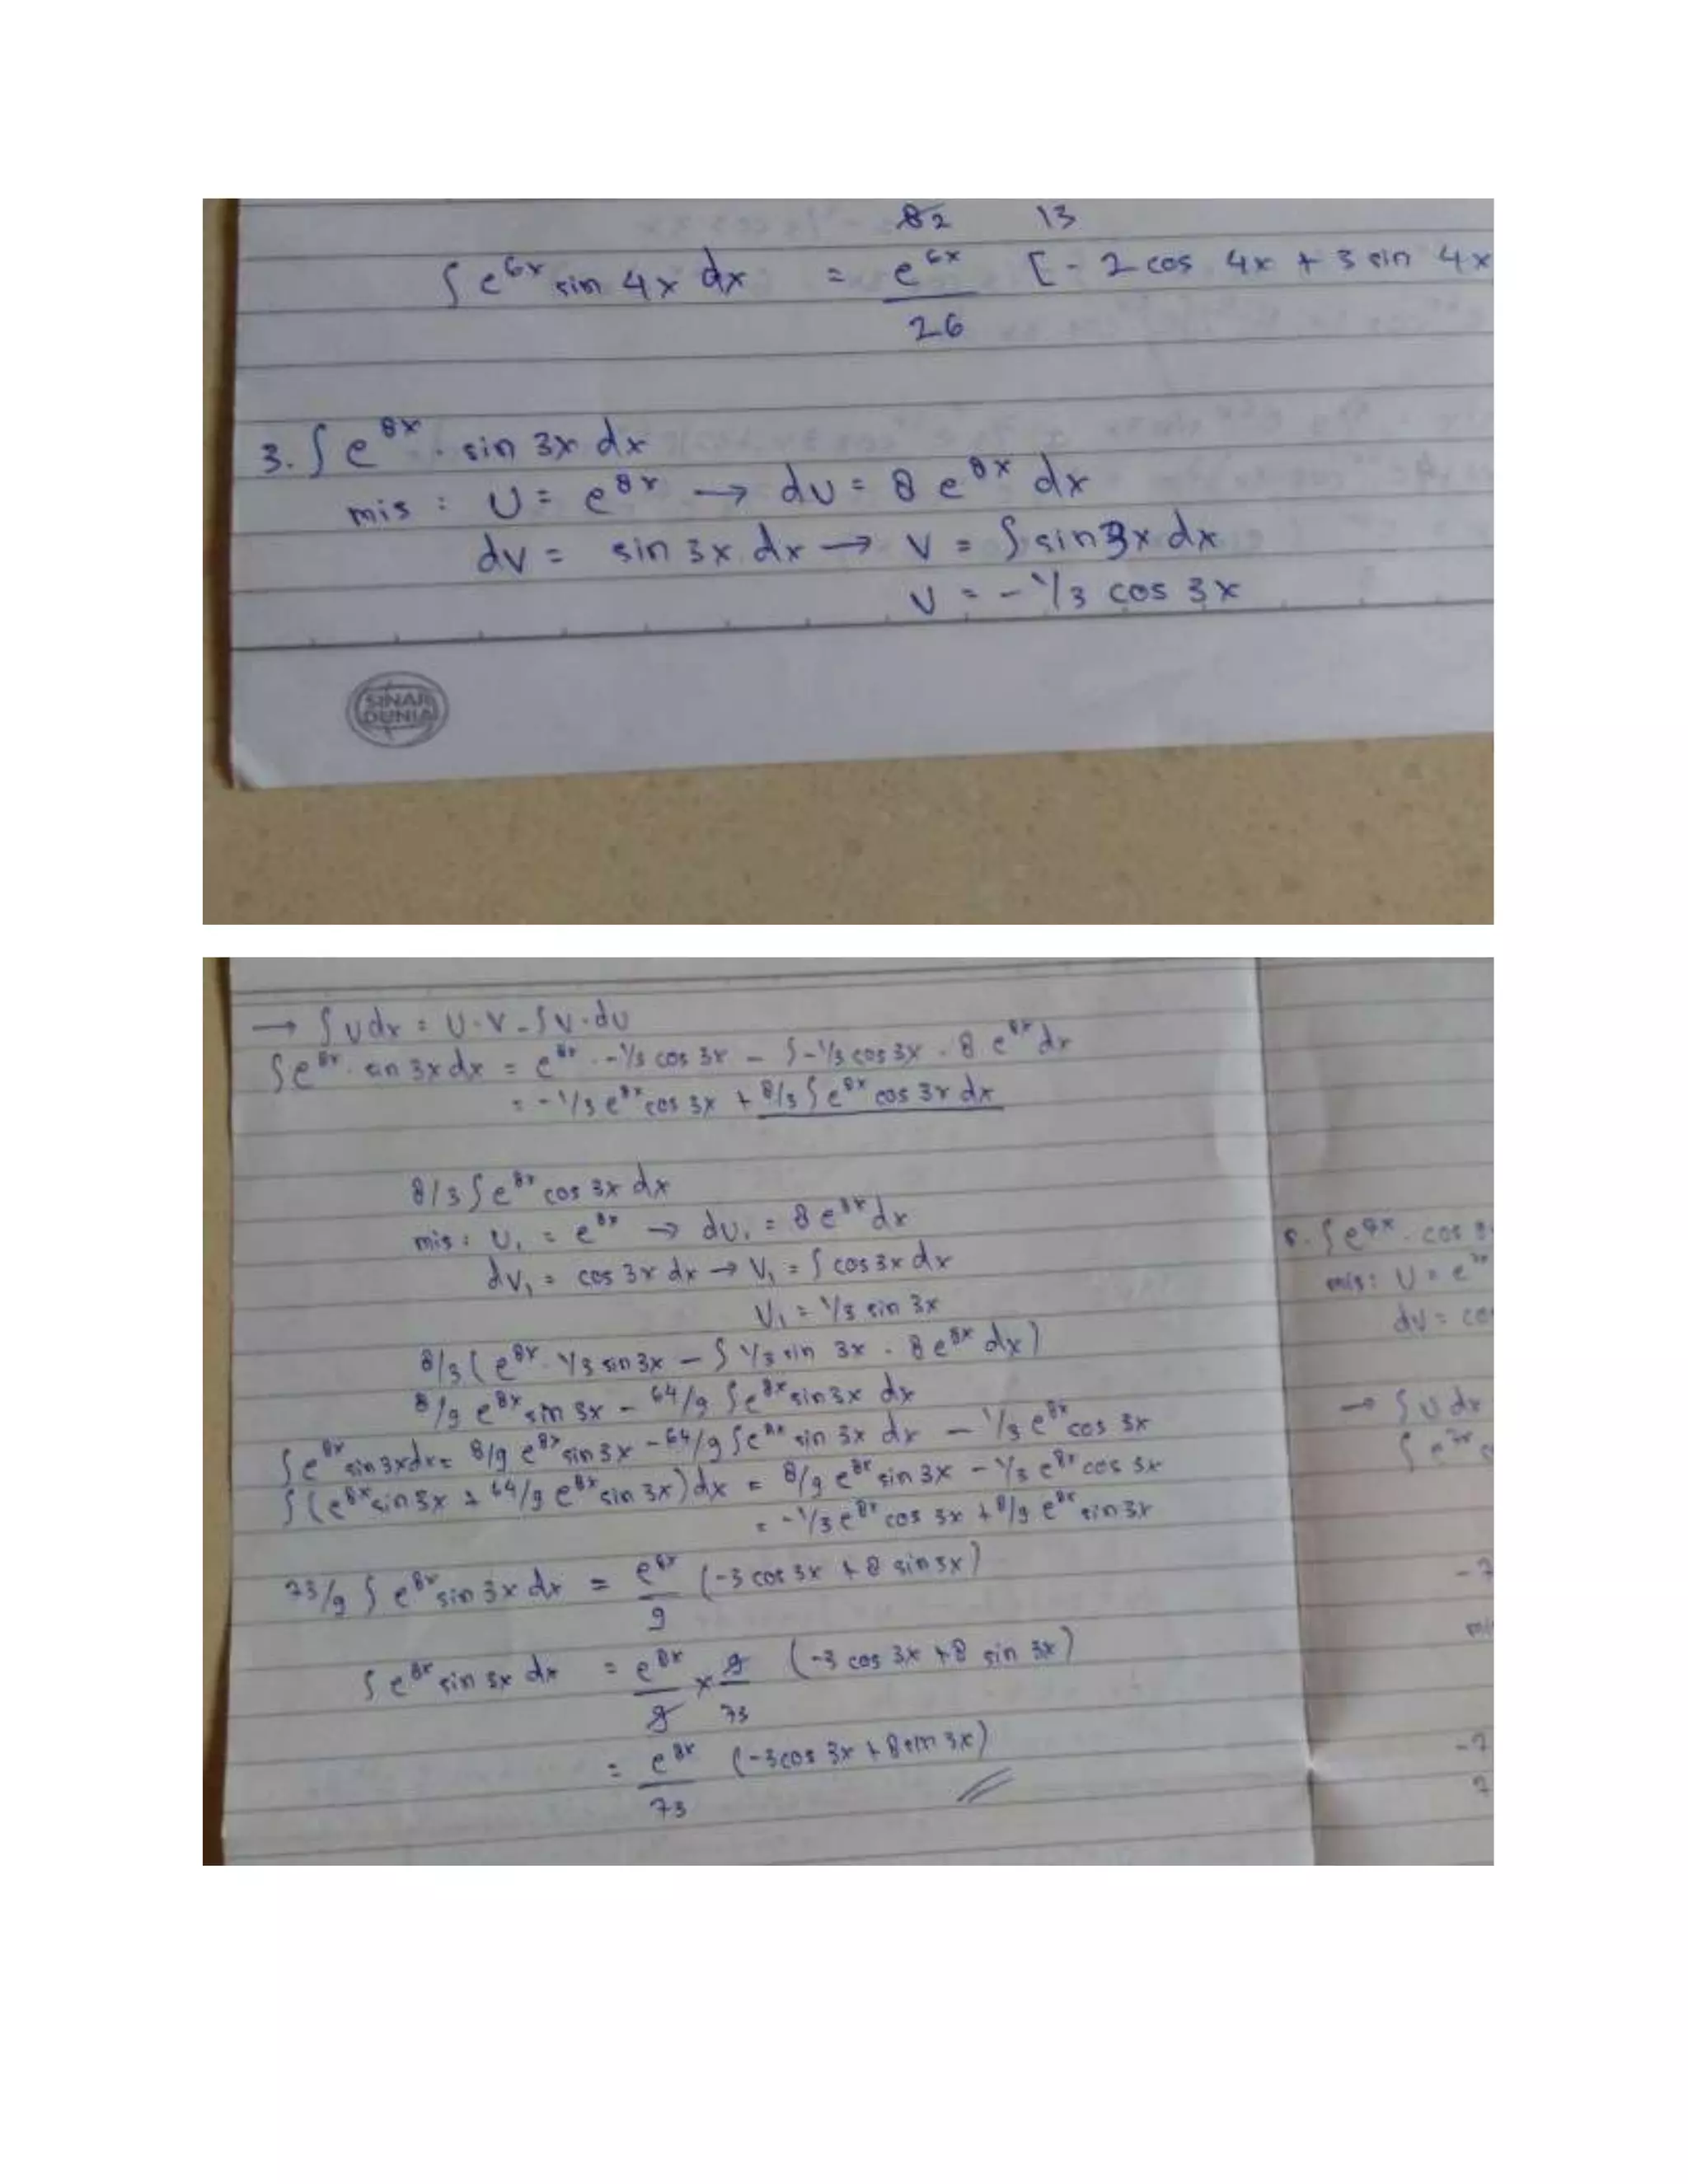 82 13
∫ e^6x sin 4x dx = e^6x/26 [- 2 cos 4x + 3 sin 4x
3. ∫ e^8x . sin 3x dx
mis : U = e^8x → du = 8 e^8x dx
dv = sin 3x dx → v = ∫ sin 3x dx
v = - 1/3 cos 3x
SINAR
DUNIA
→ ∫ u dx = U . V - ∫ V . du
∫ e^8x . sin 3x dx = e^8x . -1/3 cos 3x - ∫ -1/3 cos 3x . 8 e^8x dx
= -1/3 e^8x cos 3x + 8/3 ∫ e^8x cos 3x dx
8/3 ∫ e^8x cos 3x dx
mis : U₁ = e^8x → du₁ = 8 e^8x dx
dv₁ = cos 3x dx → V₁ = ∫ cos 3x dx
V₁ = 1/3 sin 3x
8/3 ( e^8x . 1/3 sin 3x - ∫ 1/3 sin 3x . 8 e^8x dx )
8/9 e^8x sin 3x - 64/9 ∫ e^8x sin 3x dx
∫ e^8x sin 3x dx = 8/9 e^8x sin 3x - 64/9 ∫ e^8x sin 3x dx - 1/3 e^8x cos 3x
∫ ( e^8x sin 3x + 64/9 e^8x sin 3x ) dx = 8/9 e^8x sin 3x - 1/3 e^8x cos 3x
= -1/3 e^8x cos 3x + 8/9 e^8x sin 3x
73/9 ∫ e^8x sin 3x dx = e^8x/9 (-3 cos 3x + 8 sin 3x)
∫ e^8x sin 3x dx = e^8x/9 x 9/73 (-3 cos 3x + 8 sin 3x)
= e^8x/73 (-3 cos 3x + 8 sin 3x)
mis : U = e
dv = co
→ ∫ u dx